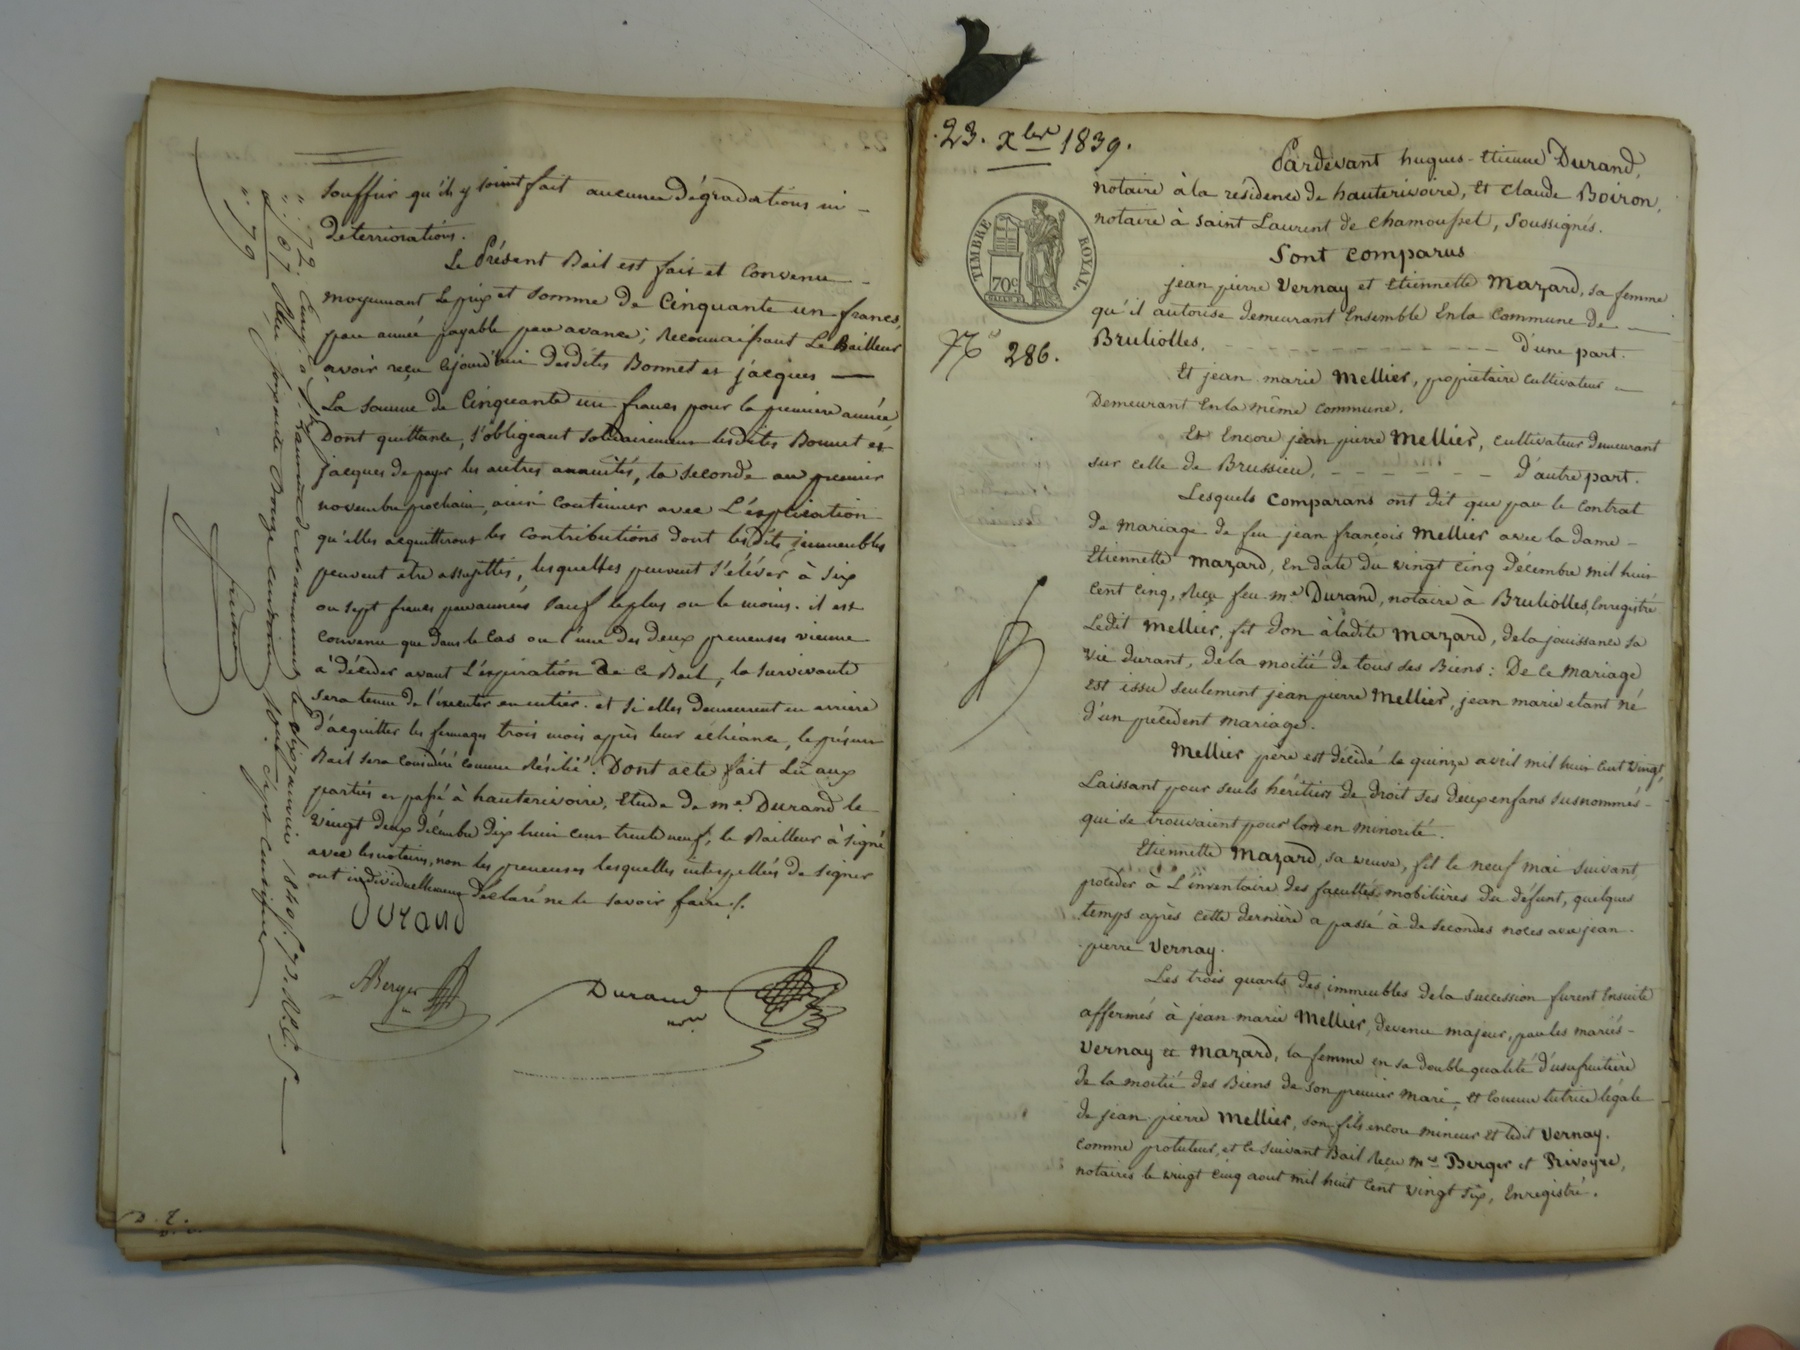 souffrir qu'il y soient fait aucunes dégradations ni
déteriorations.
Le Présent Bail est fait et convenu
moyennant le prix et somme de Cinquante un francs,
par année payable par avance; reconnaissant Le Bailleur
avoir reçu cejourd'hui desdites Bonnet et jacques
La somme de Cinquante un francs pour la premiere année
Dont quittance, s'obligeant solidairement lesdites Bonnet et
jacques de payer les autres annuités, la seconde au premier
novembre prochain, ainsi continuer avec L'expiration
qu'elles acquitteront les contributions dont lesdits immeubles
peuvent etre assujettis, lesquelles peuvent s'éléver à six
ou sept francs par années sauf le plus ou le moins. il est
convenu que dans le cas ou l'une des deux preneuses vienne
à décéder avant L'expiration de ce Bail, la survivante
sera tenue de l'executer en entier. et si elles demeurent en arriere
d'acquitter les fermages trois mois après leur échéance, le présent
Bail sera considéré comme résilié. Dont acte fait Lû aux
parties et passé à hauterivoire, Etude de me. Durand le
vingt deux décembre dix huit cent trente neuf, le Bailleur à signé
avec les notaires, non les preneuses lesquelles interpellées de signer
ont individuellement déclaré ne le savoir faire ./.
Durand
ABerger
Durand
nre
D. E.
23. Xbre 1839.
TIMBRE ROYAL.
70c.
No 286.
Pardevant hugues-Etienne Durand,
notaire à la résidence de hauterivoire, Et claude Boiron,
notaire à saint Laurent de chamousset, soussignés.
Sont comparus
jean pierre Vernay et Etiennette Mazard, sa femme
qu'il autorise demeurant Ensemble Enla commune de
Brulioles, d'une part.
Et jean marie Mellier, propietaire cultivateur
Demeurant Enla même commune.
Et Encore jean pierre Mellier, cultivateur demeurant
sur celle de Brussieu, d'autre part.
Lesquels comparans ont dit que par le contrat
de mariage de feu jean françois Mellier avec la dame
Etiennette Mazard, En date du vingt cinq décembre mil huit
cent cinq, Reçu feu me Durand, notaire à Brulioles, Enregistré
Ledit Mellier, fit don à ladite Mazard, dela jouissance sa
vie durant, dela moitié de tous ses Biens: De ce mariage
est issu seulement jean pierre Mellier, jean marie etant né
d'un précédent mariage.
Mellier père est décédé le quinze avril mil huit cent vingt,
Laissant pour seuls héritiers de droit ses deux enfans susnommés
qui se trouvaient pour lors en minorité.
Etiennette Mazard, sa veuve, fit le neuf mai suivant,
proceder à L'inventaire des facultés mobilières du défunt, quelques
temps après cette dernière a passé à de secondes noces avec jean
pierre Vernay.
Les trois quarts des immeubles dela succession furent Ensuite
affermés à jean marie Mellier, devenu majeur, par les mariés
Vernay et Mazard, la femme en sa double qualité d'usufruitière
de la moitié des Biens de son premier mari, et comme tutrice légale
de jean pierre Mellier, son fils encore mineur Et ledit Vernay.
comme protuteur, et ce suivant Bail Reçu mes Berger et Rivoyre,
notaires le vingt cinq aout mil huit cent vingt six, Enregistré.